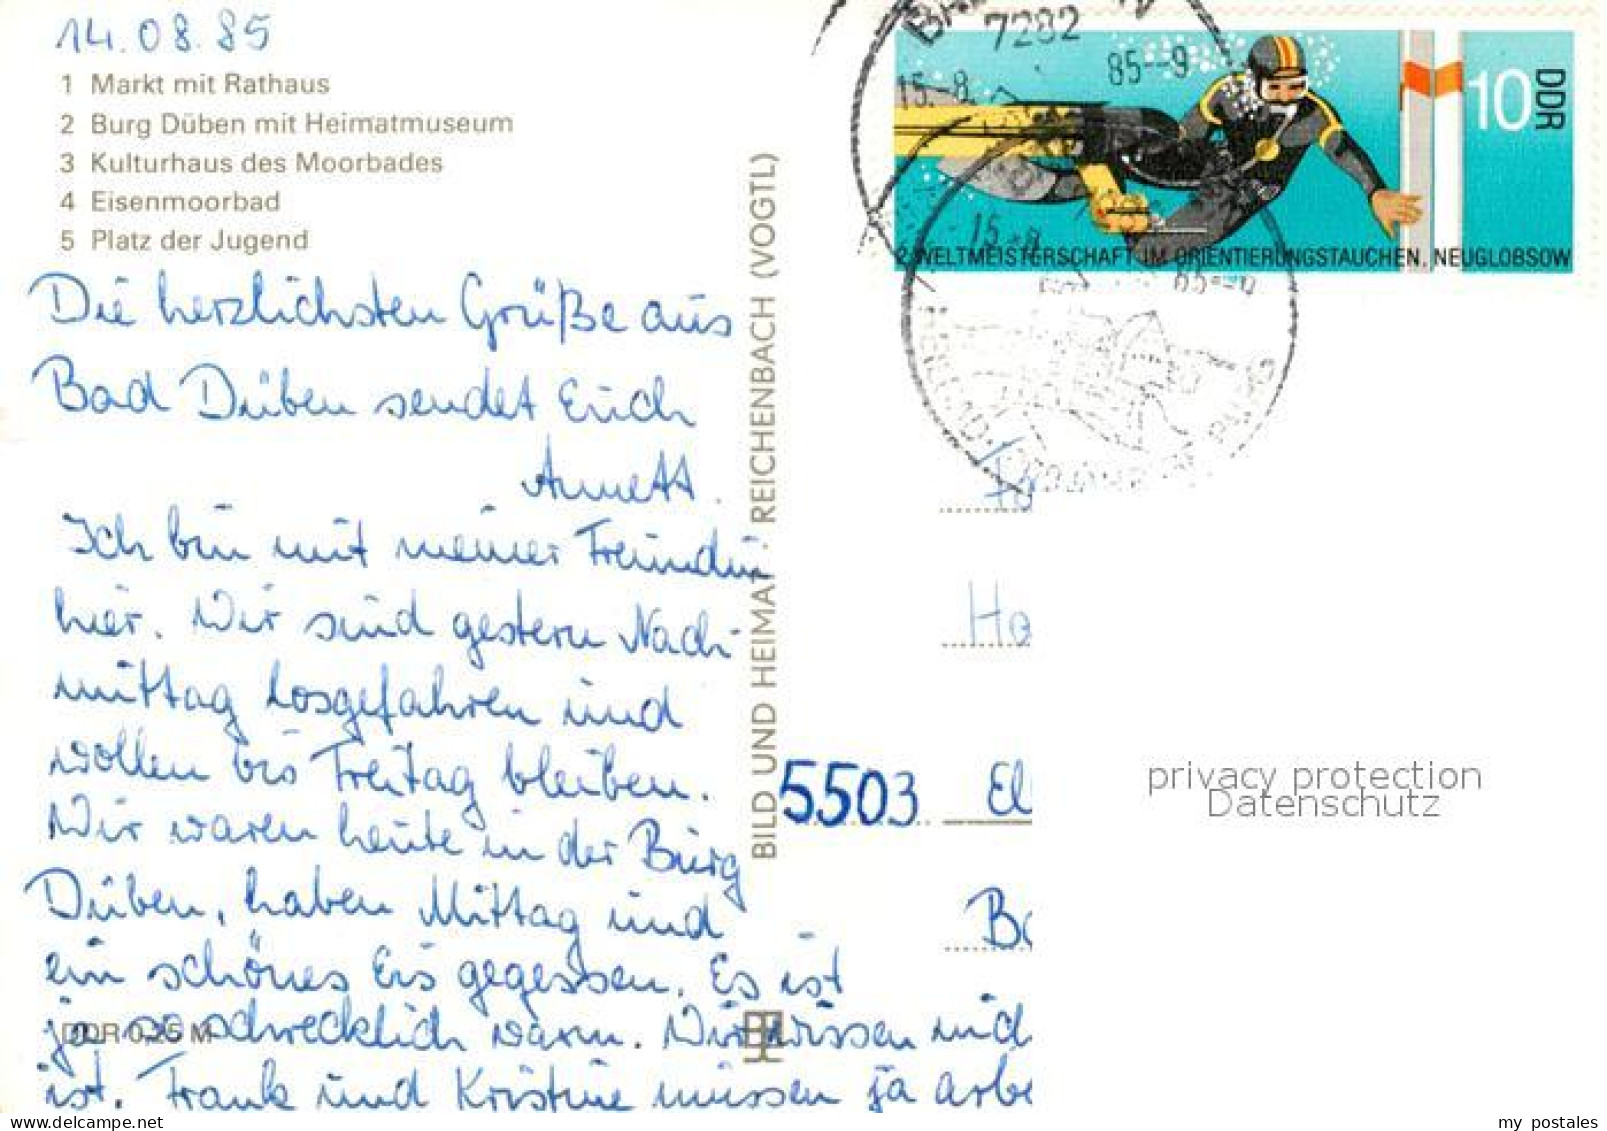 14.08.85
1 Markt mit Rathaus
2 Burg Düben mit Heimatmuseum
3 Kulturhaus des Moorbades
4 Eisenmoorbad
5 Platz der Jugend
Die herzlichsten Grüße aus
Bad Düben sendet Euch
Annett.
Ich bin mit meiner Freundin
hier. Wir sind gestern Nach-
mittag losgefahren und
wollen bis Freitag bleiben.
Wir waren heute in der Burg
Düben, haben Mittag und
ein schönes Eis gegessen. Es ist
ja so schrecklich warm. Wir wissen nich
ist. Frank und Kristine müssen ja arbe
DDR 0,25 M
BILD UND HEIMAT, REICHENBACH (VOGTL)
7282
15.-8. 85--9
15.-8 85--9
10 DDR
2. WELTMEISTERSCHAFT IM ORIENTIERUNGSTAUCHEN, NEUGLOBSOW
Ha
5503 El
privacy protection
Datenschutz
my postales